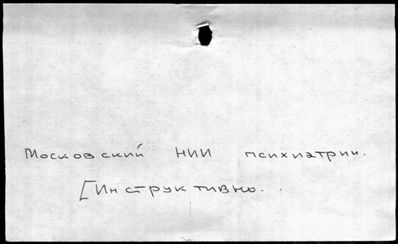 Московский НИИ психиатрии.
[Инструктивно.